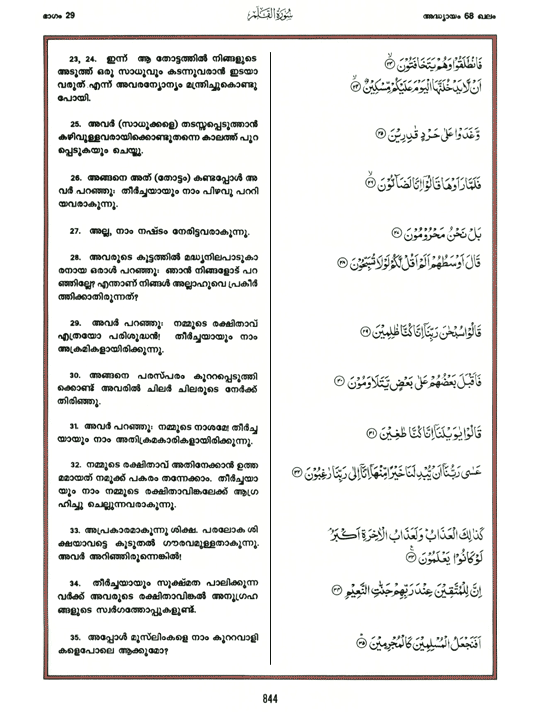 ഭാഗം 29
سُورَةُ القَلَمِ
അദ്ധ്യായം 68 ഖലം
23, 24. ഇന്ന് ആ തോട്ടത്തിൽ നിങ്ങളുടെ
അടുത്ത് ഒരു സാധുവും കടന്നുവരാൻ ഇടയാ
വരുത് എന്ന് അവരന്യോന്യം മന്ത്രിച്ചുകൊണ്ടു
പോയി.
25. അവർ (സാധുക്കളെ) തടസ്സപ്പെടുത്താൻ
കഴിവുള്ളവരായിക്കൊണ്ടുതന്നെ കാലത്ത് പുറ
പ്പെടുകയും ചെയ്തു.
26. അങ്ങനെ അത് (തോട്ടം) കണ്ടപ്പോൾ അ
വർ പറഞ്ഞു: തീർച്ചയായും നാം പിഴവു പററി
യവരാകുന്നു.
27. അല്ല, നാം നഷ്ടം നേരിട്ടവരാകുന്നു.
28. അവരുടെ കൂട്ടത്തിൽ മദ്ധ്യനിലപാടുകാ
രനായ ഒരാൾ പറഞ്ഞു: ഞാൻ നിങ്ങളോട് പറ
ഞ്ഞില്ലേ? എന്താണ് നിങ്ങൾ അല്ലാഹുവെ പ്രകീർ
ത്തിക്കാതിരുന്നത്?
29. അവർ പറഞ്ഞു: നമ്മുടെ രക്ഷിതാവ്
എത്രയോ പരിശുദ്ധൻ! തീർച്ചയായും നാം
അക്രമികളായിരിക്കുന്നു.
30. അങ്ങനെ പരസ്പരം കുററപ്പെടുത്തി
ക്കൊണ്ട് അവരിൽ ചിലർ ചിലരുടെ നേർക്ക്
തിരിഞ്ഞു.
31. അവർ പറഞ്ഞു: നമ്മുടെ നാശമേ! തീർച്ച
യായും നാം അതിക്രമകാരികളായിരിക്കുന്നു.
32. നമ്മുടെ രക്ഷിതാവ് അതിനേക്കാൻ ഉത്ത
മമായത് നമുക്ക് പകരം തന്നേക്കാം. തീർച്ചയാ
യും നാം നമ്മുടെ രക്ഷിതാവിങ്കലേക്ക് ആഗ്ര
ഹിച്ചു ചെല്ലുന്നവരാകുന്നു.
33. അപ്രകാരമാകുന്നു ശിക്ഷ. പരലോക ശി
ക്ഷയാവട്ടെ കൂടുതൽ ഗൗരവമുള്ളതാകുന്നു.
അവർ അറിഞ്ഞിരുന്നെങ്കിൽ!
34. തീർച്ചയായും സൂക്ഷ്മത പാലിക്കുന്ന
വർക്ക് അവരുടെ രക്ഷിതാവിങ്കൽ അനുഗ്രഹ
ങ്ങളുടെ സ്വർഗത്തോപ്പുകളുണ്ട്.
35. അപ്പോൾ മുസ്ലിംകളെ നാം കുററവാളി
കളെപോലെ ആക്കുമോ?
فَانْطَلَقُوْا وَهُمْ يَتَخَافَتُوْنَ ﴿٢٣﴾
اَنْ لَّا يَدْخُلَنَّهَا الْيَوْمَ عَلَيْكُمْ مِّسْكِيْنٌ ﴿٢٤﴾
وَّغَدَوْا عَلٰى حَرْدٍ قٰدِرِيْنَ ﴿٢٥﴾
فَلَمَّا رَاَوْهَا قَالُوْٓا اِنَّا لَضَآلُّوْنَ ﴿٢٦﴾
بَلْ نَحْنُ مَحْرُوْمُوْنَ ﴿٢٧﴾
قَالَ اَوْسَطُهُمْ اَلَمْ اَقُلْ لَّكُمْ لَوْلَا تُسَبِّحُوْنَ ﴿٢٨﴾
قَالُوْا سُبْحٰنَ رَبِّنَآ اِنَّا كُنَّا ظٰلِمِيْنَ ﴿٢٩﴾
فَاَقْبَلَ بَعْضُهُمْ عَلٰى بَعْضٍ يَّتَلَاوَمُوْنَ ﴿٣٠﴾
قَالُوْا يٰوَيْلَنَآ اِنَّا كُنَّا طٰغِيْنَ ﴿٣١﴾
عَسٰى رَبُّنَآ اَنْ يُّبْدِلَنَا خَيْرًا مِّنْهَآ اِنَّآ اِلٰى رَبِّنَا رٰغِبُوْنَ ﴿٣٢﴾
كَذٰلِكَ الْعَذَابُ وَلَعَذَابُ الْاٰخِرَةِ اَكْبَرُ
لَوْ كَانُوْا يَعْلَمُوْنَ ﴿٣٣﴾
اِنَّ لِلْمُتَّقِيْنَ عِنْدَ رَبِّهِمْ جَنّٰتِ النَّعِيْمِ ﴿٣٤﴾
اَفَنَجْعَلُ الْمُسْلِمِيْنَ كَالْمُجْرِمِيْنَ ﴿٣٥﴾
844